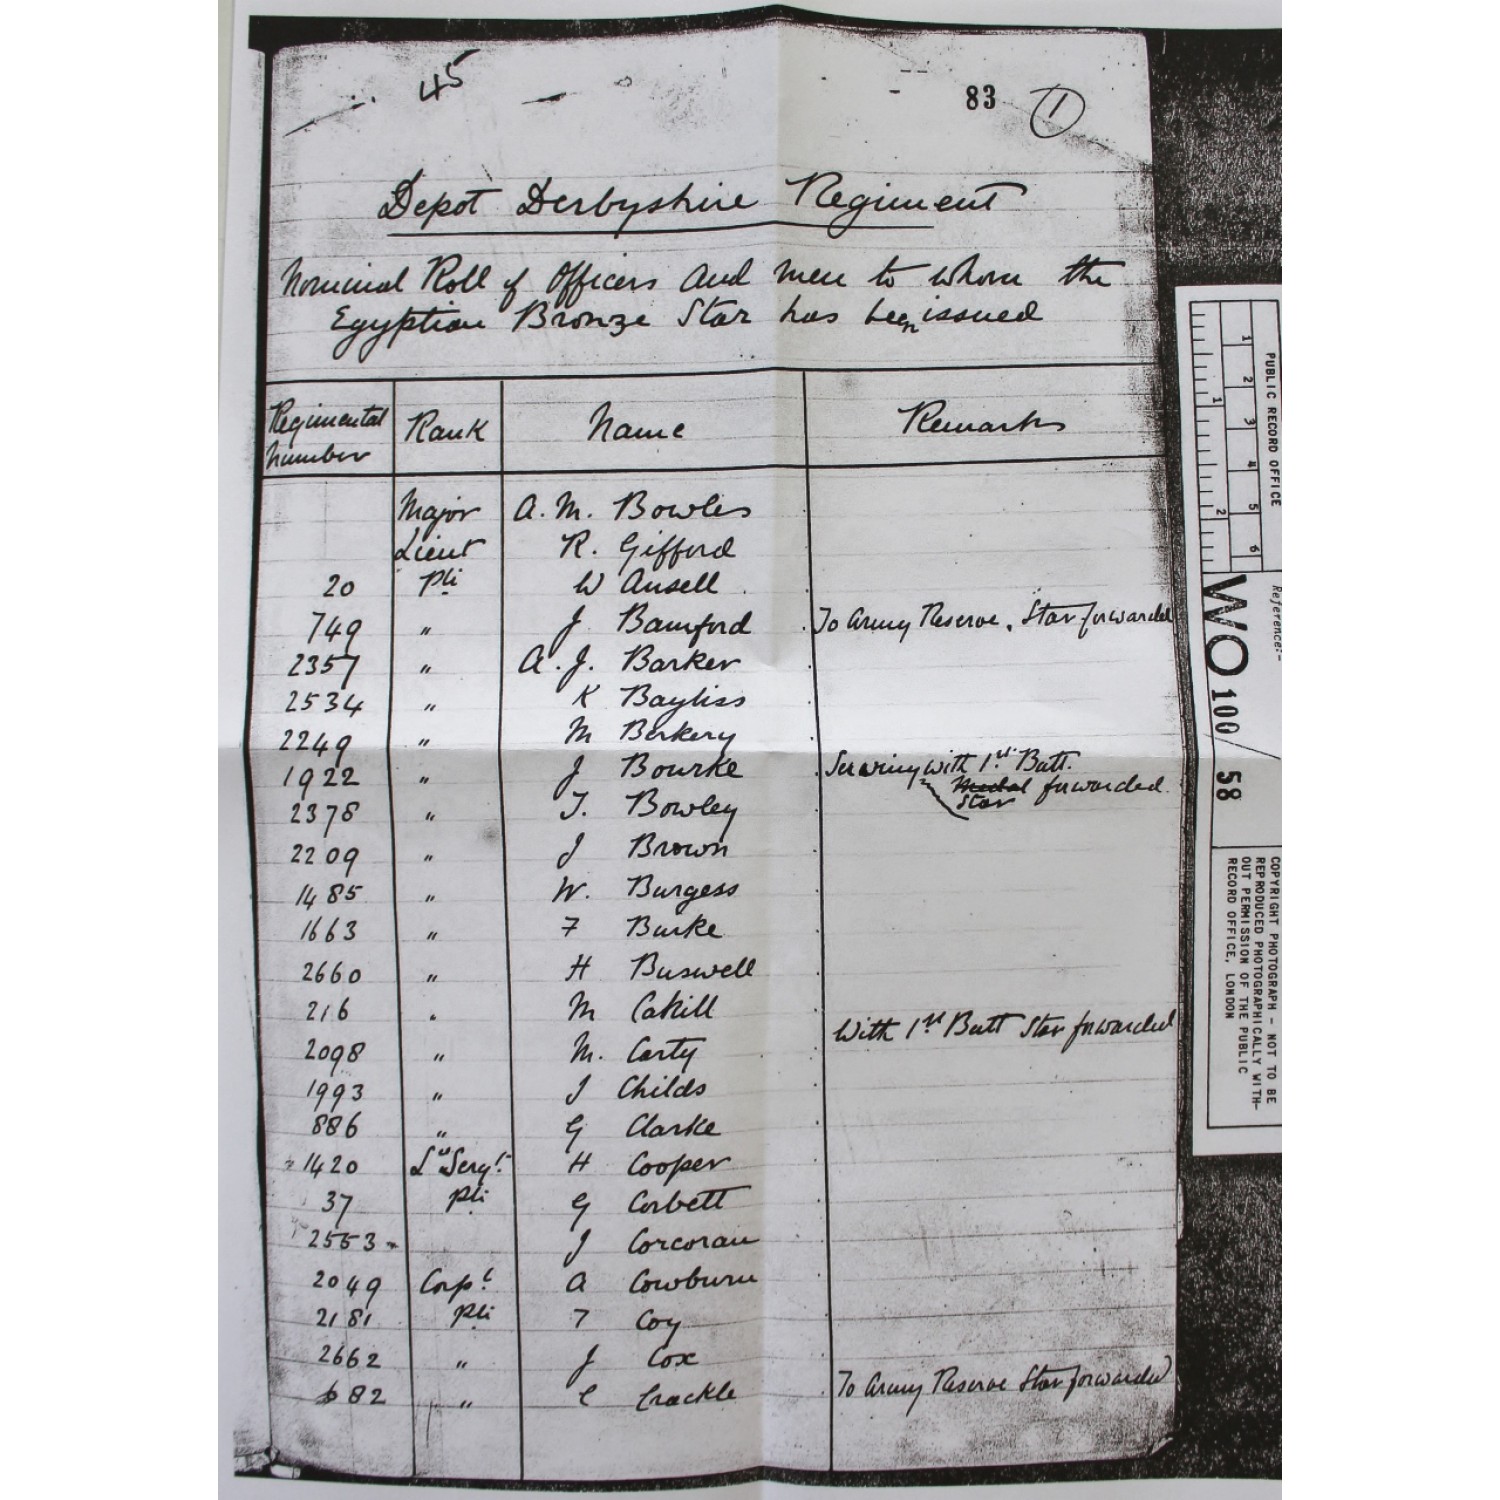 45
83 1
Depot Derbyshire Regiment
Nominal Roll of Officers and men to whom the
Egyptian Bronze Star has been issued
Regimental Number Rank Name Remarks
Major A. M. Bowles
Lieut R. Gifford
20 Pte W Ansell
749 " J Bamford To Army Reserve, Star forwarded
2357 " A. J. Barker
2534 " K Bayliss
2249 " M Berkery
1922 " J Bourke Serving with 1st Batt. Medal Star forwarded
2378 " T. Bowley
2209 " J Brown
1485 " W. Burgess
1663 " F Burke
2660 " H Buswell
216 " M Cahill
2098 " M. Carty With 1st Batt Star forwarded
1993 " J Childs
886 " G Clarke
1420 Lce Sergt H Cooper
37 Pte G Corbett
2553 J Corcoran
2049 Corpl A Cowburn
2181 Pte T Coy
2662 " J Cox
682 " C Crackle To Army Reserve Star forwarded
PUBLIC RECORD OFFICE
1 2 3 4 5 6
1 2
Reference:-
WO 100/58
COPYRIGHT PHOTOGRAPH - NOT TO BE
REPRODUCED PHOTOGRAPHICALLY WITH-
OUT PERMISSION OF THE PUBLIC
RECORD OFFICE, LONDON